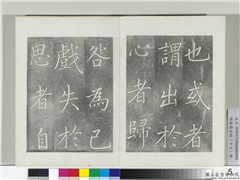 也或者
謂出於
心者歸
咎為己
戲失於
思者自